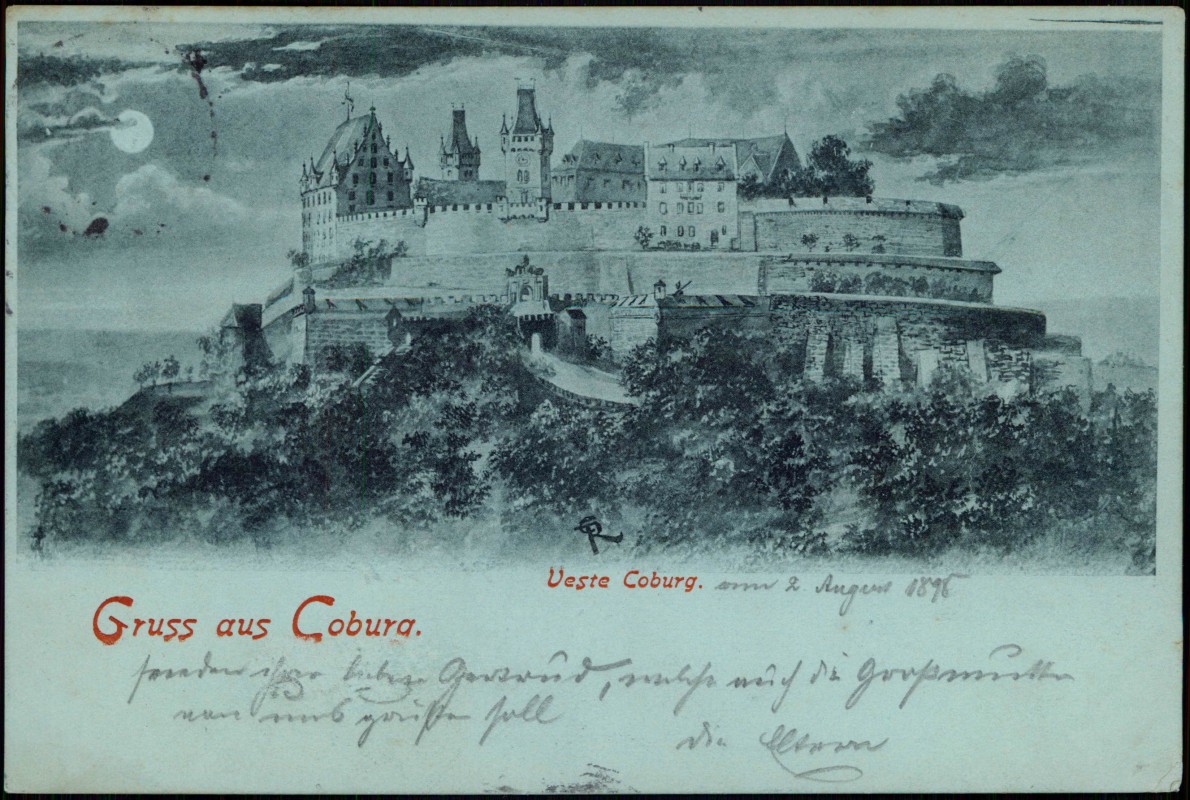 Veste Coburg. am 2. August 1898
Gruss aus Coburg.
senden ihrer lieben Gertrud, welche auch die Großmutter
von uns grüßen soll
die Eltern